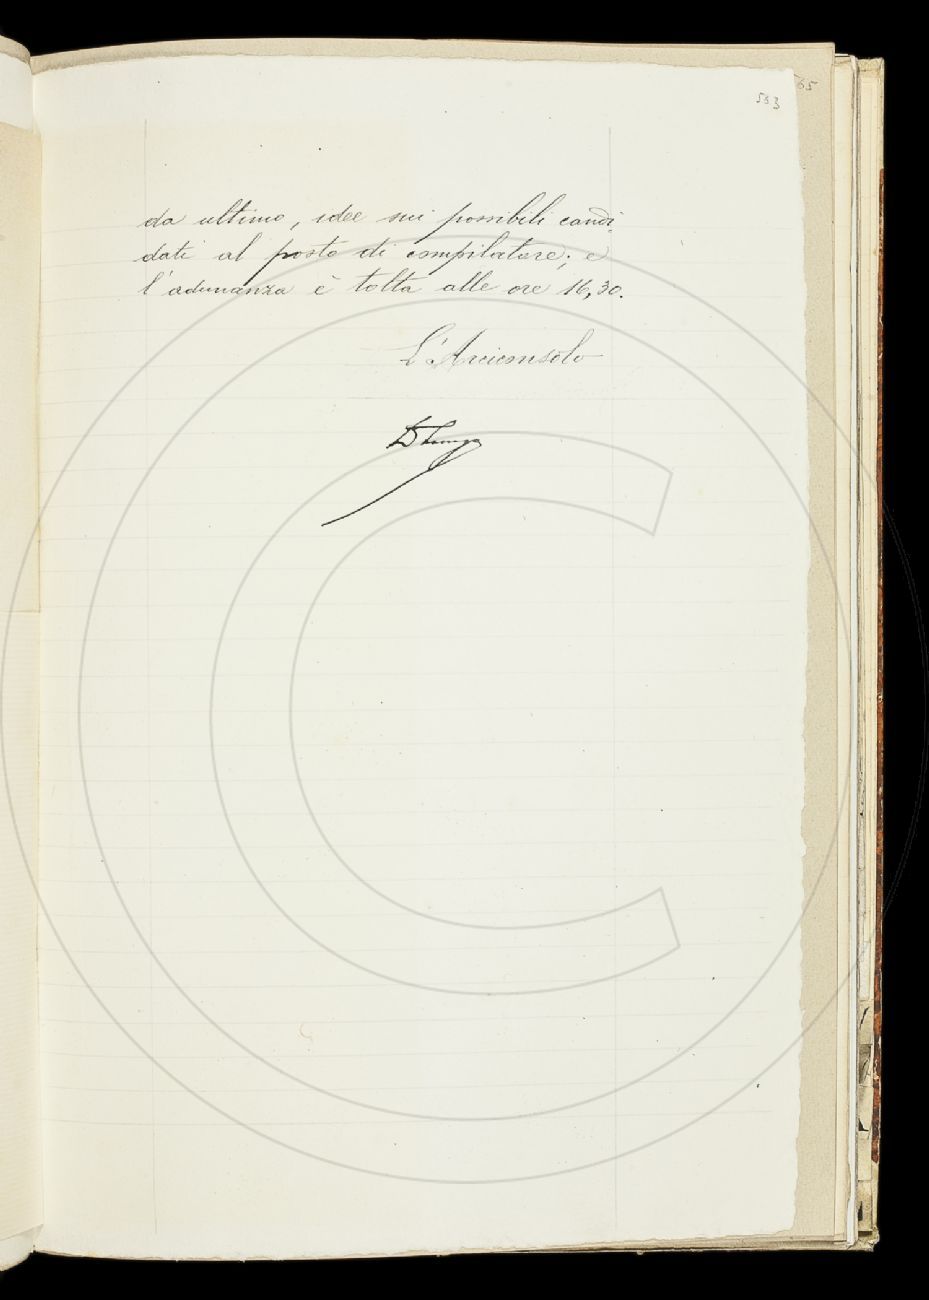 563
65
da ultimo, idee sui possibili candi-
dati al posto di compilatore; e
l'adunanza è tolta alle ore 16,30.
L'Arciconsolo